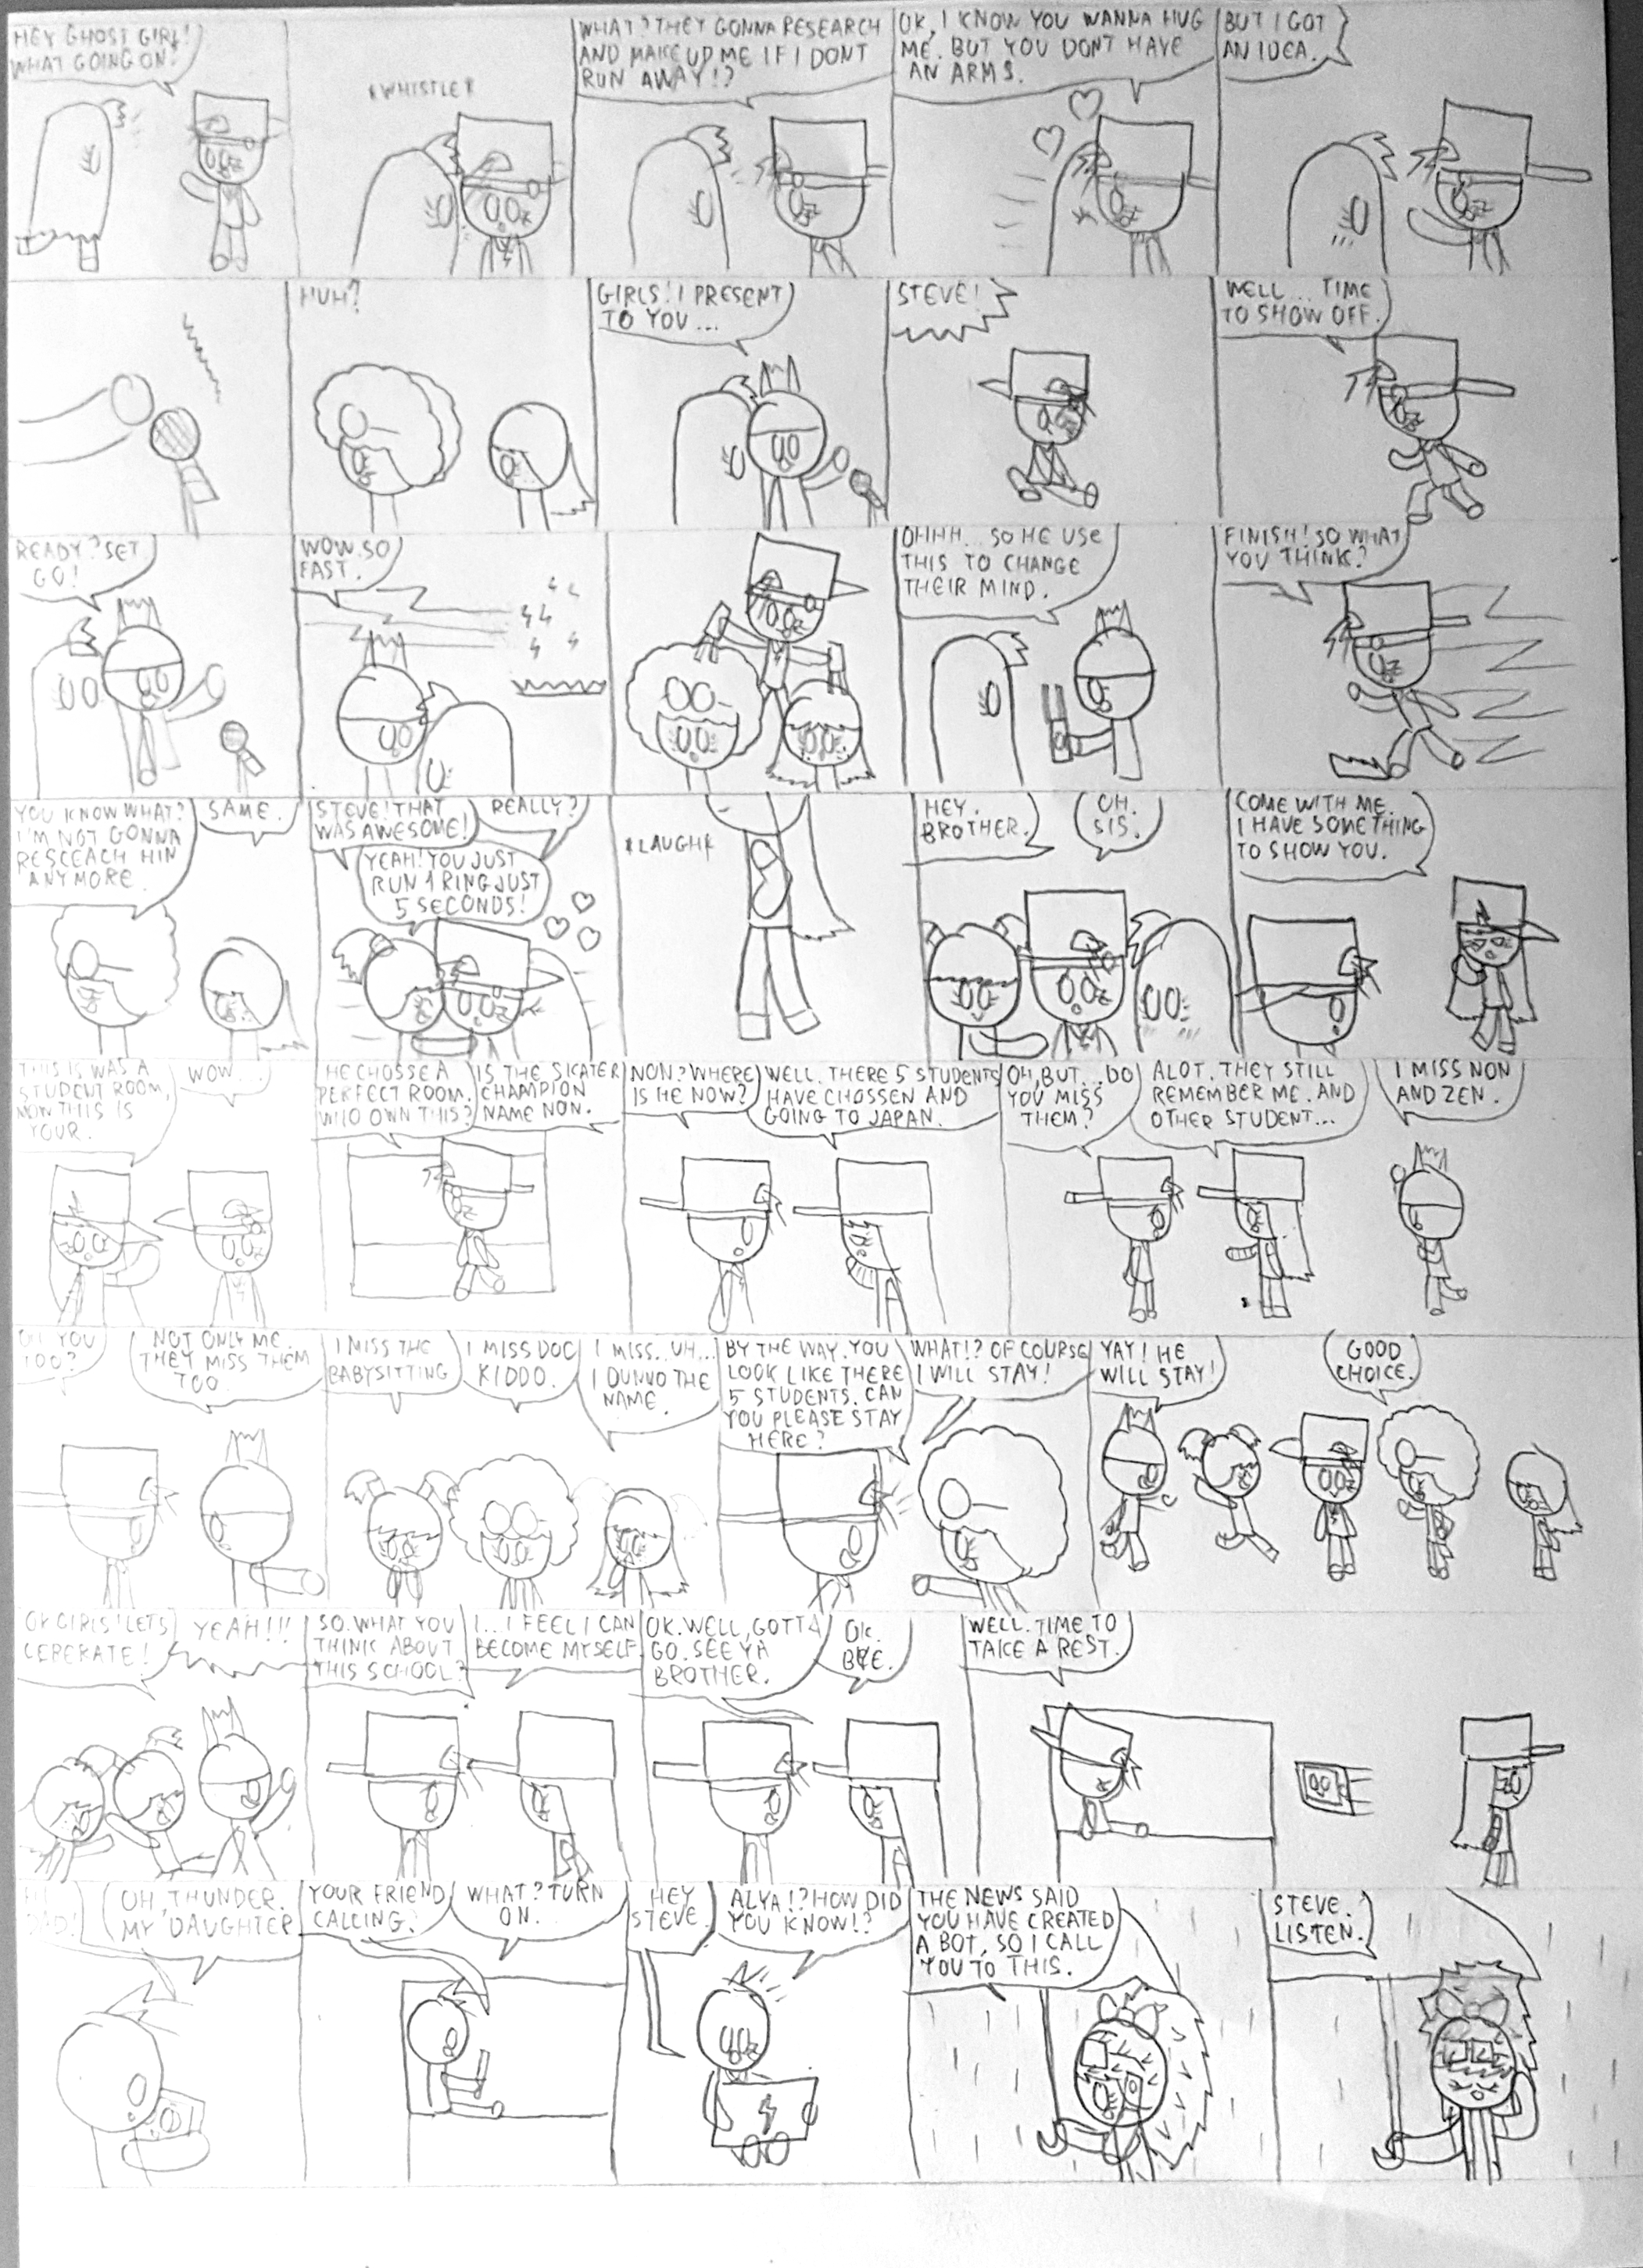 HEY GHOST GIRL!
WHAT GOING ON?
*WHISTLE*
WHAT? THEY GONNA RESEARCH
AND MAKE UP ME IF I DONT
RUN AWAY!?
OK, I KNOW YOU WANNA HUG
ME. BUT YOU DONT HAVE
AN ARMS.
BUT I GOT
AN IDEA.
HUH?
GIRLS! I PRESENT
TO YOU...
STEVE!
WELL... TIME
TO SHOW OFF.
READY? SET
GO!
WOW. SO
FAST.
OHHH... SO HE USE
THIS TO CHANGE
THEIR MIND.
FINISH! SO WHAT
YOU THINK?
YOU KNOW WHAT?
I'M NOT GONNA
RESCEACH HIN
ANYMORE.
SAME.
STEVE! THAT
WAS AWESOME!
REALLY?
YEAH! YOU JUST
RUN 1 RING JUST
5 SECONDS!
*LAUGH*
HEY.
BROTHER.
OH.
SIS.
COME WITH ME.
I HAVE SOMETHING
TO SHOW YOU.
THIS IS WAS A
STUDENT ROOM,
NOW THIS IS
YOUR.
WOW...
HE CHOSSE A
PERFECT ROOM.
WHO OWN THIS?
IS THE SKATER
CHAMPION
NAME NON.
NON? WHERE
IS HE NOW?
WELL. THERE 5 STUDENTS
HAVE CHOSSEN AND
GOING TO JAPAN.
OH, BUT... DO
YOU MISS
THEM?
ALOT. THEY STILL
REMEMBER ME. AND
OTHER STUDENT...
I MISS NON
AND ZEN.
OH YOU
TOO?
NOT ONLY ME.
THEY MISS THEM
TOO.
I MISS THE
BABYSITTING
I MISS DOC
KIDDO.
I MISS.. UH...
I DUNNO THE
NAME.
BY THE WAY. YOU
LOOK LIKE THERE
5 STUDENTS. CAN
YOU PLEASE STAY
HERE?
WHAT!? OF COURSE
I WILL STAY!
YAY! HE
WILL STAY!
GOOD
CHOICE.
OK GIRLS! LETS
CEREKATE!
YEAH!!!
SO. WHAT YOU
THINK ABOUT
THIS SCHOOL?
I... I FEEL I CAN
BECOME MYSELF
OK. WELL, GOTTA
GO. SEE YA
BROTHER.
OK.
BYE.
WELL. TIME TO
TAKE A REST.
DAD!
OH, THUNDER.
MY DAUGHTER
YOUR FRIEND
CALLING?
WHAT? TURN
ON.
HEY
STEVE
ALYA!? HOW DID
YOU KNOW!?
THE NEWS SAID
YOU HAVE CREATED
A BOT, SO I CALL
YOU TO THIS.
STEVE.
LISTEN.